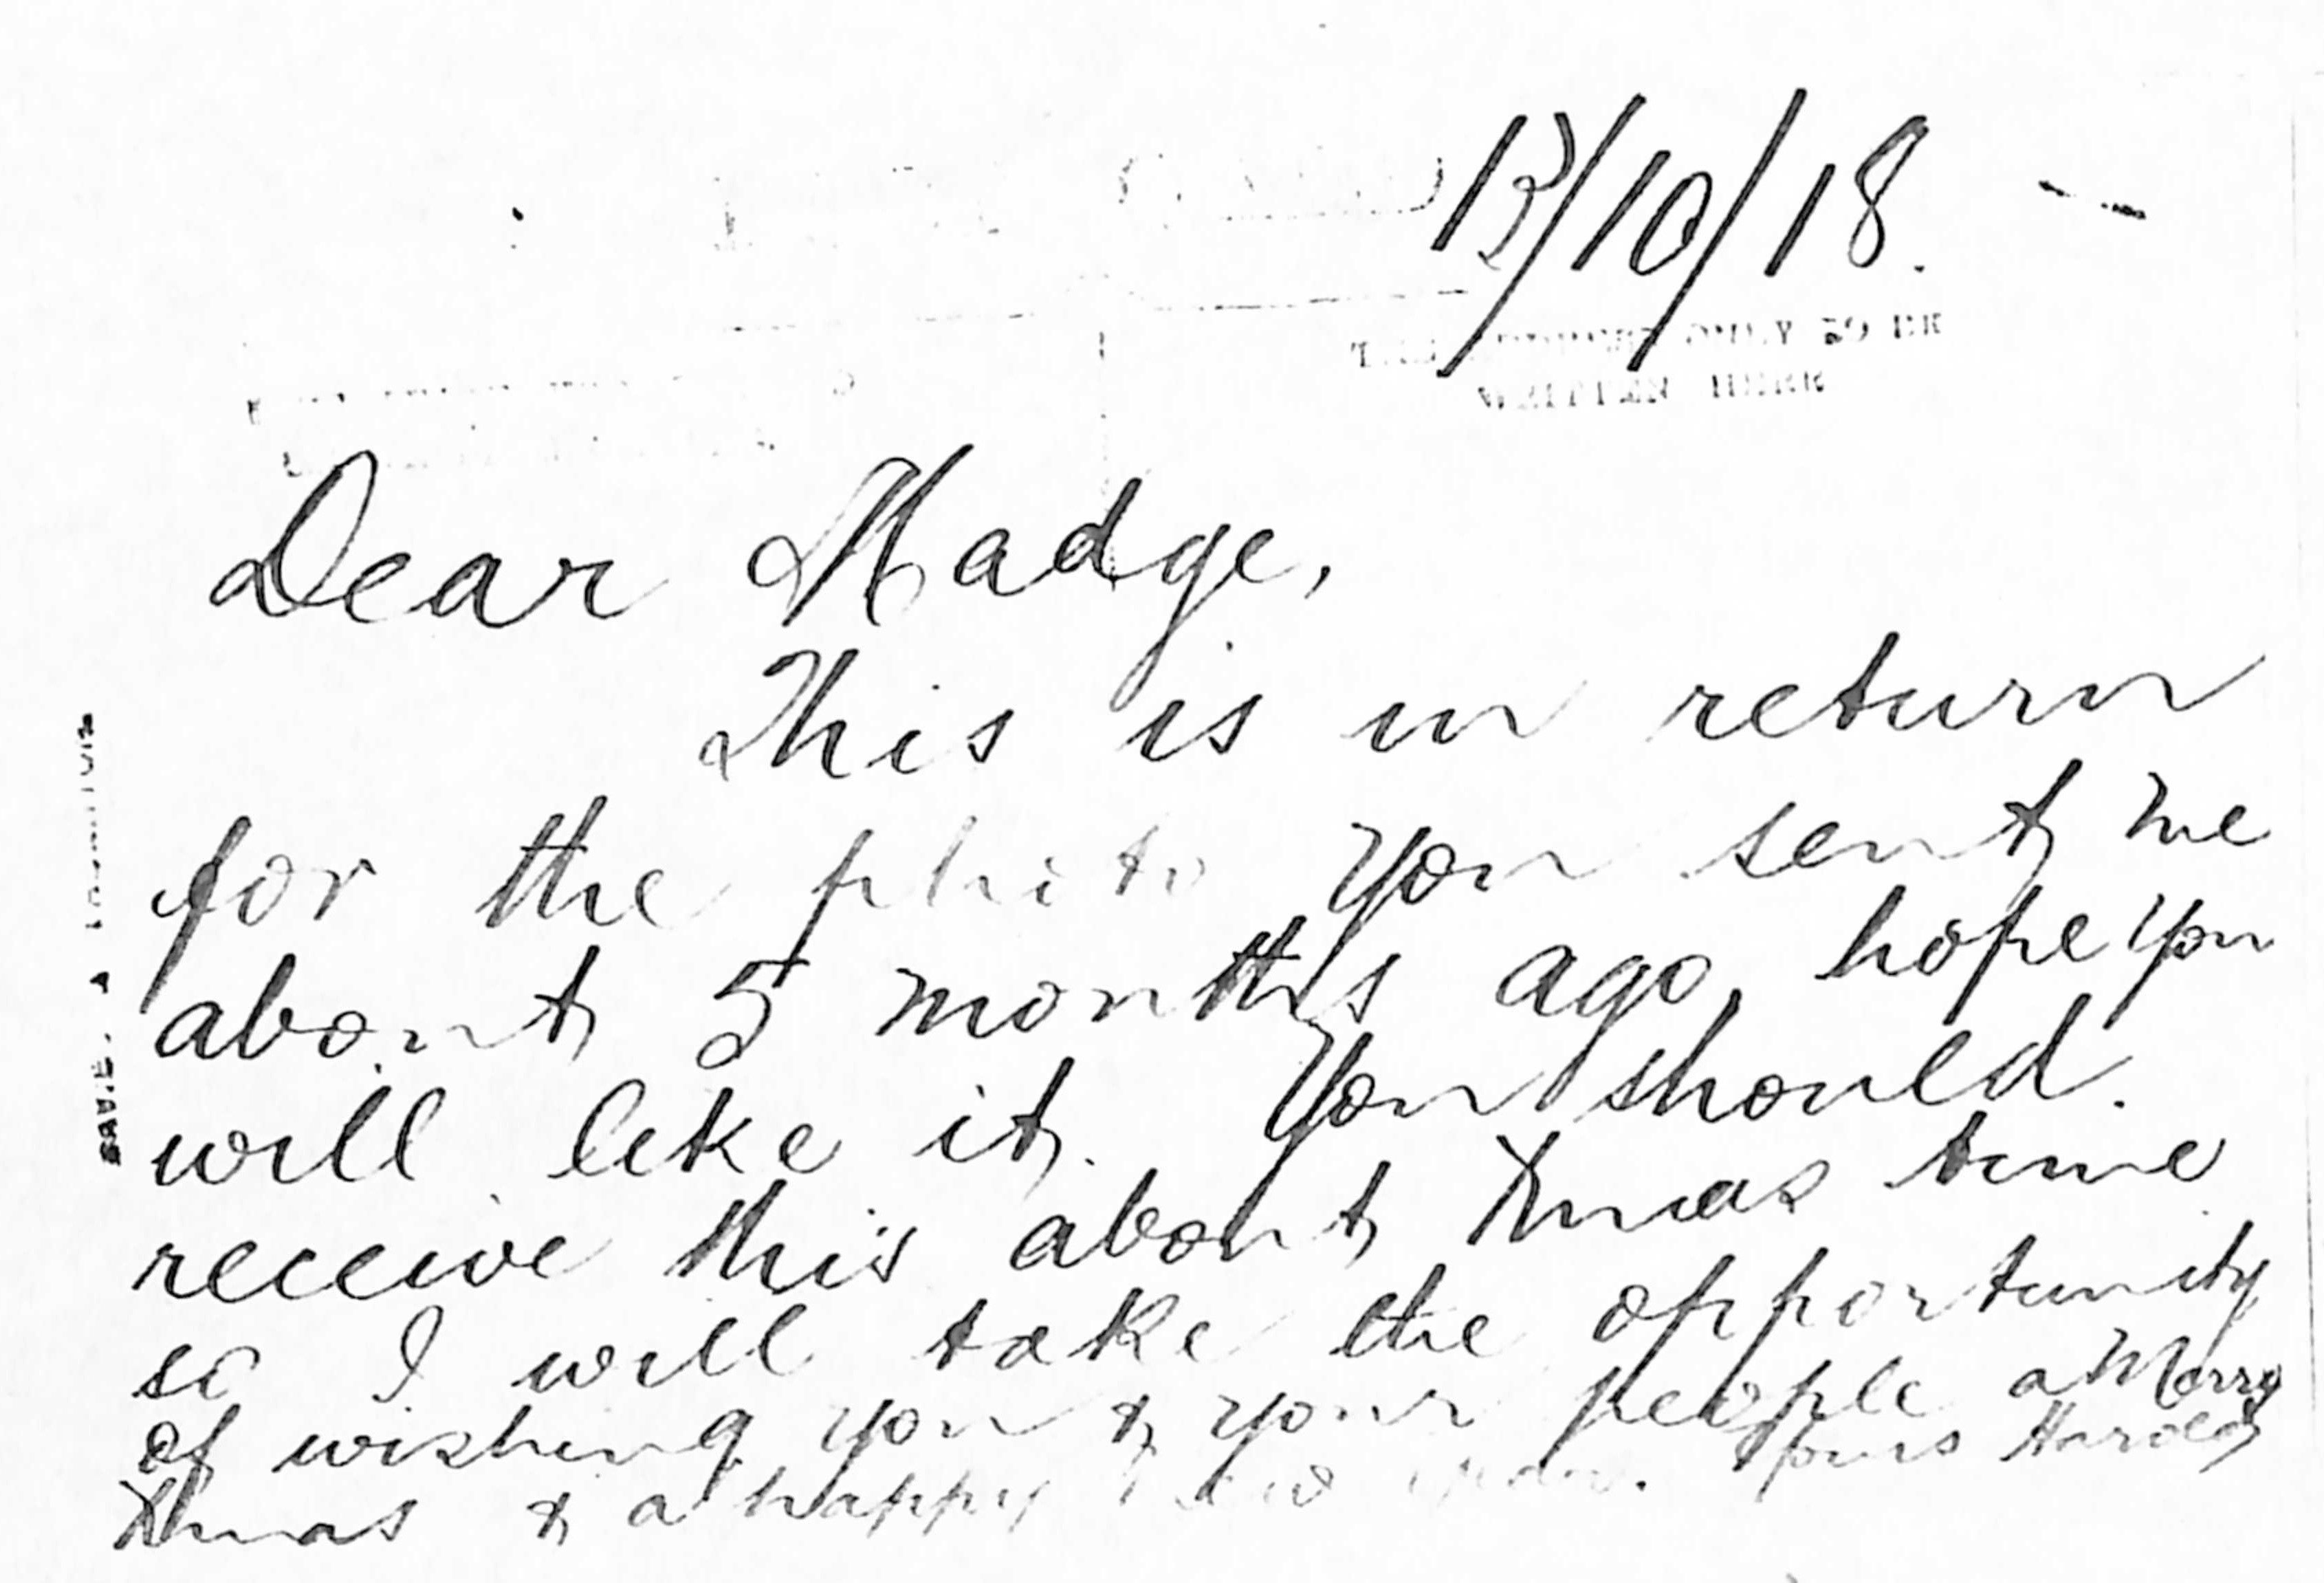 13/10/18.
ONLY TO BE
WRITTEN HERE
Dear Madge,
This is in return
for the photo you sent me
about 5 months ago, hope you
will like it. You should.
receive this about Xmas time
so I will take the opportunity
of wishing you & your people a Merry
Xmas & a happy New year. Yours Harold